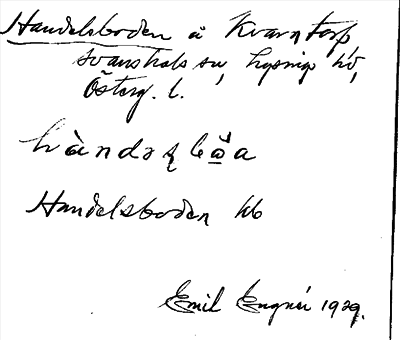 Handelsboden å Kvarntorp
Svanshals sn, Lysings hd,
Österg. l.
Handelsboden kb
Emil Engnér 1929.